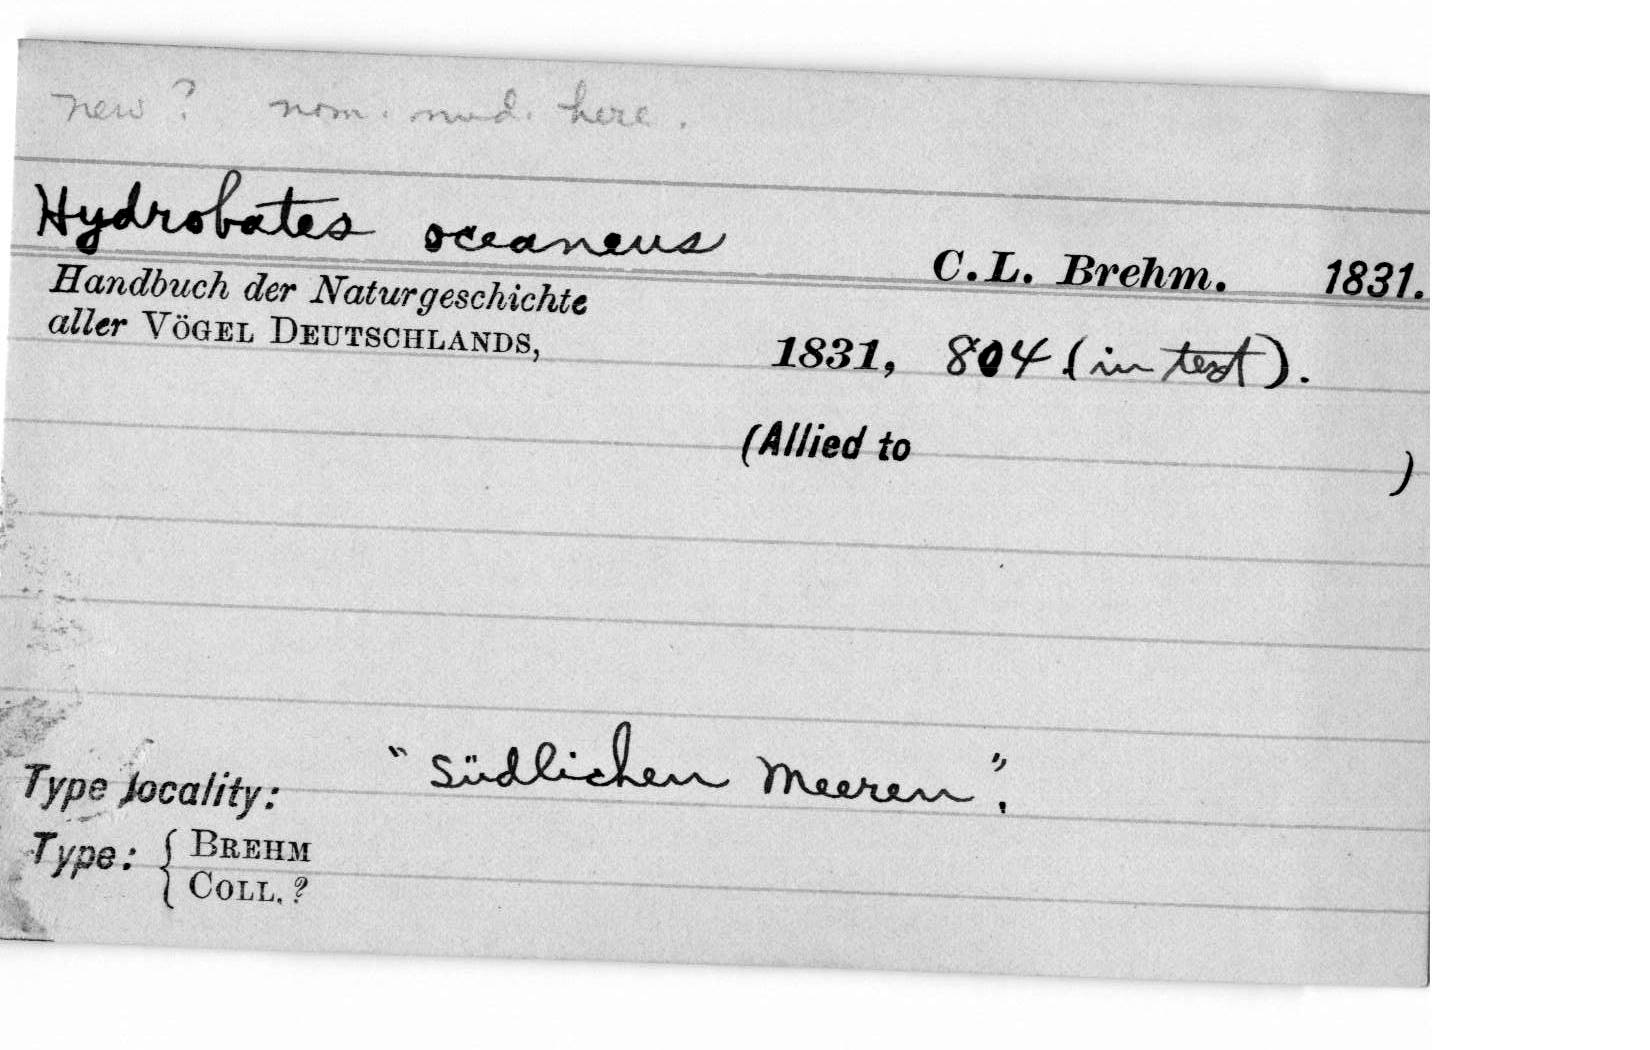 new? nom. nud. here.
Hydrobates oceaneus C.L. Brehm. 1831.
Handbuch der Naturgeschichte
aller VÖGEL DEUTSCHLANDS, 1831, 804 (in text).
(Allied to )
Type locality: "Südlichen Meeren".
Type: { BREHM
COLL. ?